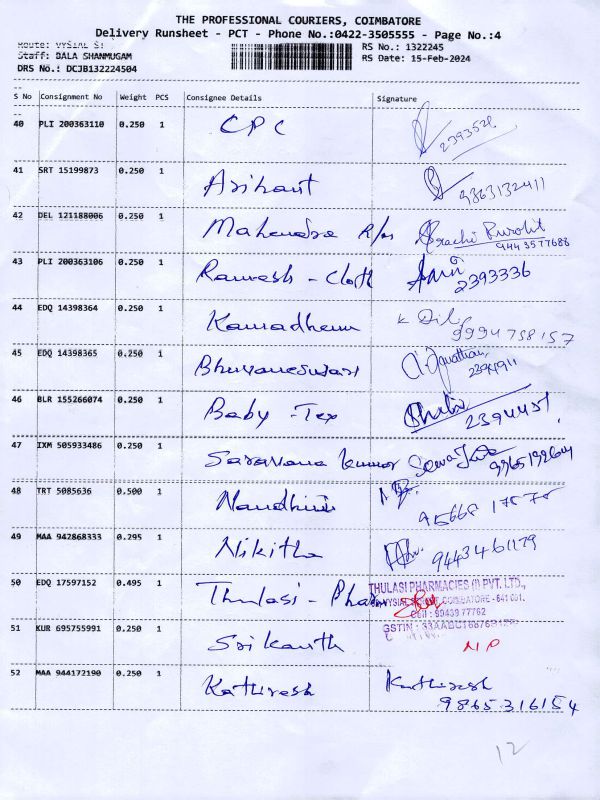 THE PROFESSIONAL COURIERS, COIMBATORE
Delivery Runsheet - PCT - Phone No.:0422-3505555 - Page No.:4
Route: VYSIAL St
RS No.: 1322245
Staff: BALA SHANMUGAM
RS Date: 15-Feb-2024
DRS No.: DCJB132224504
S No Consignment No Weight PCS Consignee Details Signature
40 PLI 200363110 0.250 1 CPC 2393528
41 SRT 15199873 0.250 1 Arihant 9363132411
42 DEL 121188006 0.250 1 Mahendra R/m Prachi Purohit
9443577688
43 PLI 200363106 0.250 1 Ramesh - Cloth 2393336
44 EDQ 14398364 0.250 1 Kamadhenu K Dilip
9994758157
45 EDQ 14398365 0.250 1 Bhuvaneswari
46 BLR 155266074 0.250 1 Baby - Tex 2394451
47 IXM 505933486 0.250 1 Saravana kumar
48 TRT 5085636 0.500 1 Nandhini
49 MAA 942868333 0.295 1 Nikitha 9443461179
50 EDQ 17597152 0.495 1 Thulasi - Pharm
THULASI PHARMACIES (I) PVT. LTD.,
VYSIAL STREET, COIMBATORE - 641 001.
Cell : 90439 77762
51 KUR 695755991 0.250 1 Srikanth NP
52 MAA 944172190 0.250 1 Kathiresh Kathiresh
9865316154
12